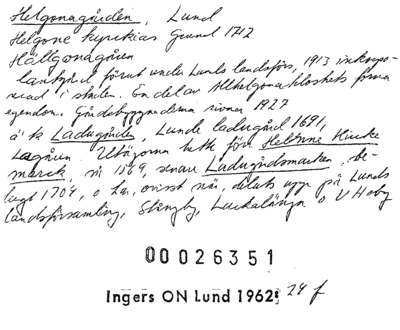 Helgonagården, Lund
Helgone kyrckias Grund 1712
Hällgonagåren
lantgård förut under Lunds landsförs, 1913 inkorpo-
rerad i staden. En del av Allhelgonaklostrets forna
egendom. Gårdsbyggnaderna rivna 1927
å k Ladugården, Lunde ladugård 1691,
Lagåren. Utägorna hette förr Helenne Kircke
marck, 1569, senare Ladugårdsmarken, be-
lagt 1704, o har, ovisst när, delats upp på Lunds
landsförsamling, Stångby, Lackalänga o V Hoby
00026351
Ingers ON Lund 1962: 29 f